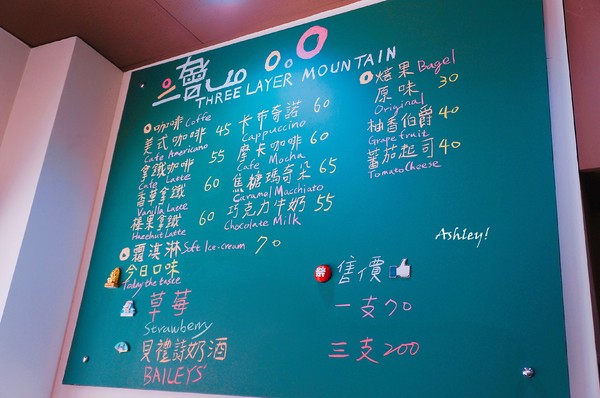 三層山
THREE LAYER MOUNTAIN
咖啡 Coffe
美式咖啡 45
Cafe Americano
拿鐵咖啡 55
Cafe Latte
香草拿鐵 60
Vanilla Latte
榛果拿鐵 60
Hazelnut Latte
卡布奇諾 60
Cappuccino
摩卡咖啡 60
Cafe Mocha
焦糖瑪奇朵 65
Caramel Macchiato
巧克力牛奶 55
Chocolate Milk
焙果 Bagel
原味 30
Original
柚香伯爵 40
Grape fruit
蕃茄起司 40
Tomato Cheese
霜淇淋 Soft Ice-cream 70
今日口味
Today the taste
草莓
Strawberry
貝禮詩奶酒
BAILEYS
售價
一支70
三支200
Ashley!